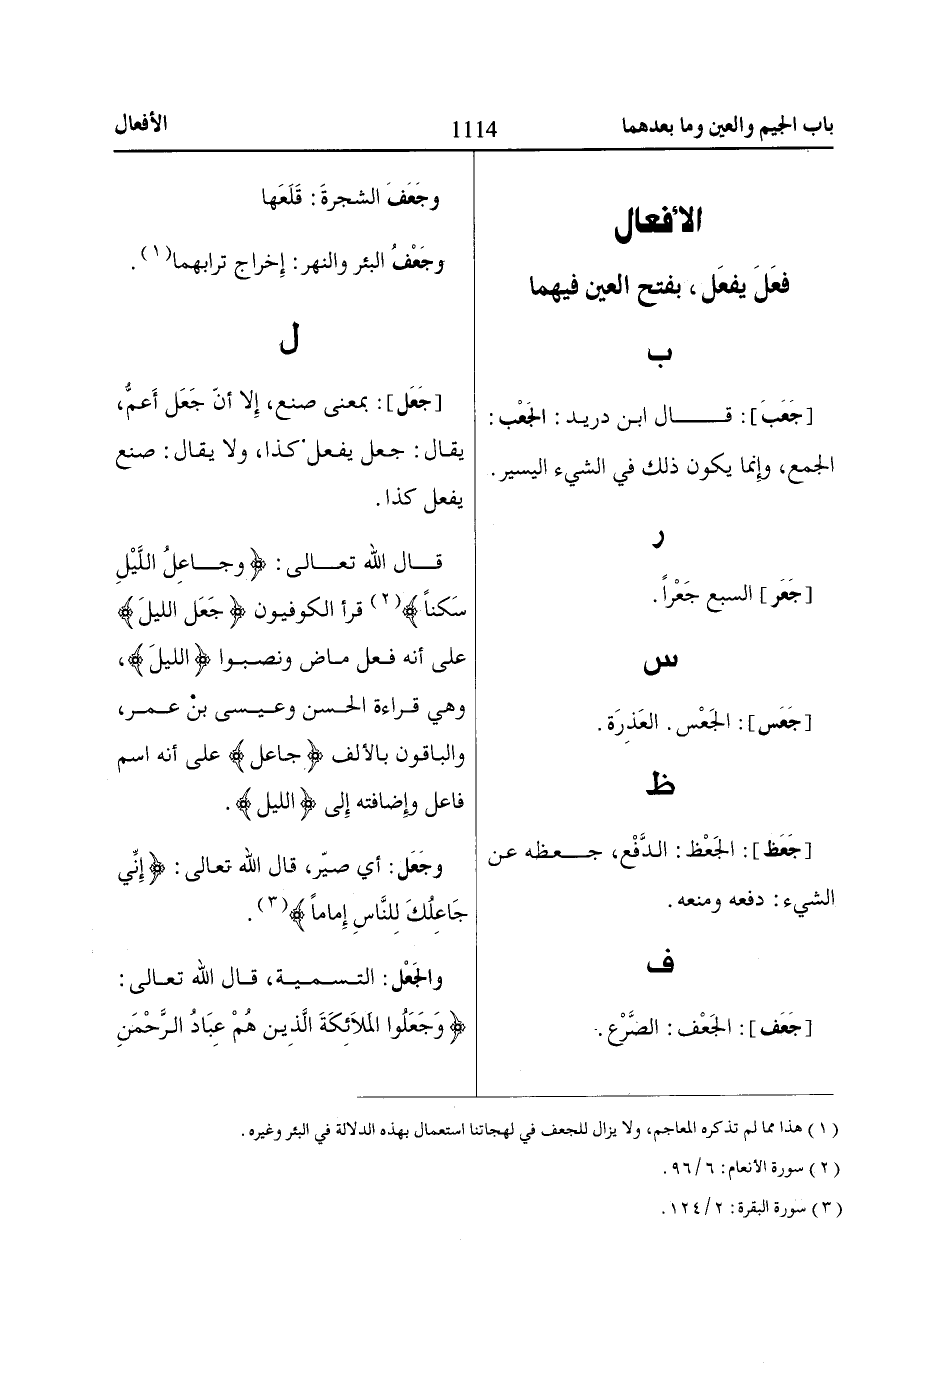 باب الجيم والعين وما بعدهما
1114
الأفعال
الأفعال
فعَلَ يفعَل، بفتح العين فيهما
ب
[جَعَبَ]: قال ابن دريد: الجَعْب:
الجمع، وإنما يكون ذلك في الشيء اليسير.
ر
[جَعَر] السبع جَعْراً.
س
[جَعَس]: الجَعْس. العَذِرَة.
ظ
[جَعَظ]: الجَعْظ: الدَّفْع، جعظه عن
الشيء: دفعه ومنعه.
ف
[جَعَف]: الجَعْف: الصَّرْع.
وجَعَفَ الشجرةَ: قَلَعَها
وجَعْفُ البئر والنهر: إخراج ترابهما(١).
ل
[جَعَل]: بمعنى صنع، إلا أنّ جَعَل أعمُّ،
يقال: جعل يفعل كذا، ولا يقال: صنع
يفعل كذا.
قال الله تعالى: ﴿وجاعلُ اللَّيْلِ
سَكناً﴾(٢) قرأ الكوفيون ﴿جَعَل الليلَ﴾
على أنه فعل ماض ونصبوا ﴿الليلَ﴾،
وهي قراءة الحسن وعيسى بنْ عمر،
والباقون بالألف ﴿جاعل﴾ على أنه اسم
فاعل وإضافته إلى ﴿الليل﴾.
وجَعَل: أي صيّر، قال الله تعالى: ﴿إِنِّي
جَاعِلُكَ لِلنَّاسِ إِماماً﴾(٣).
والجَعْل: التسمية، قال الله تعالى:
﴿وَجَعَلُوا المَلاَئِكَةَ الَّذِين هُمْ عبَادُ الرَّحْمَنِ
(١) هذا مما لم تذكره المعاجم، ولا يزال للجعف في لهجاتنا استعمال بهذه الدلالة في البئر وغيره.
(٢) سورة الأنعام: ٦/ ٩٦.
(٣) سورة البقرة: ٢/ ١٢٤.